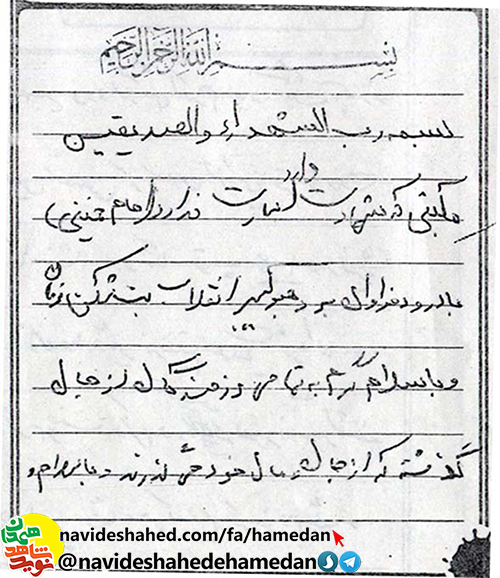 بسم الله الرحمن الرحیم
بسمه رب الشهداء و الصدیقین
مکتبی که شهادت دارد اسارت ندارد (امام خمینی)
با درود فراوان به رهبر انقلاب بت شکن زمان
و با سلام گرم به تمامی رزمندگان از جان
گذشته که از جان و مال خود می گذرند و با سلام و
navideshahed.com/fa/hamedan
@navideshahedehamedan
نوید شاهد همدان